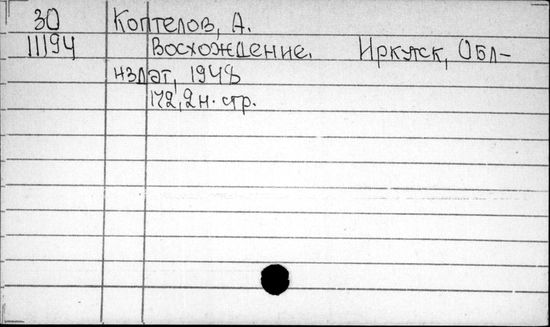 30 Коптелов, А.
11194 Восхождение. Иркутск, Обл-
издат, 1948
172, 2 н. стр.